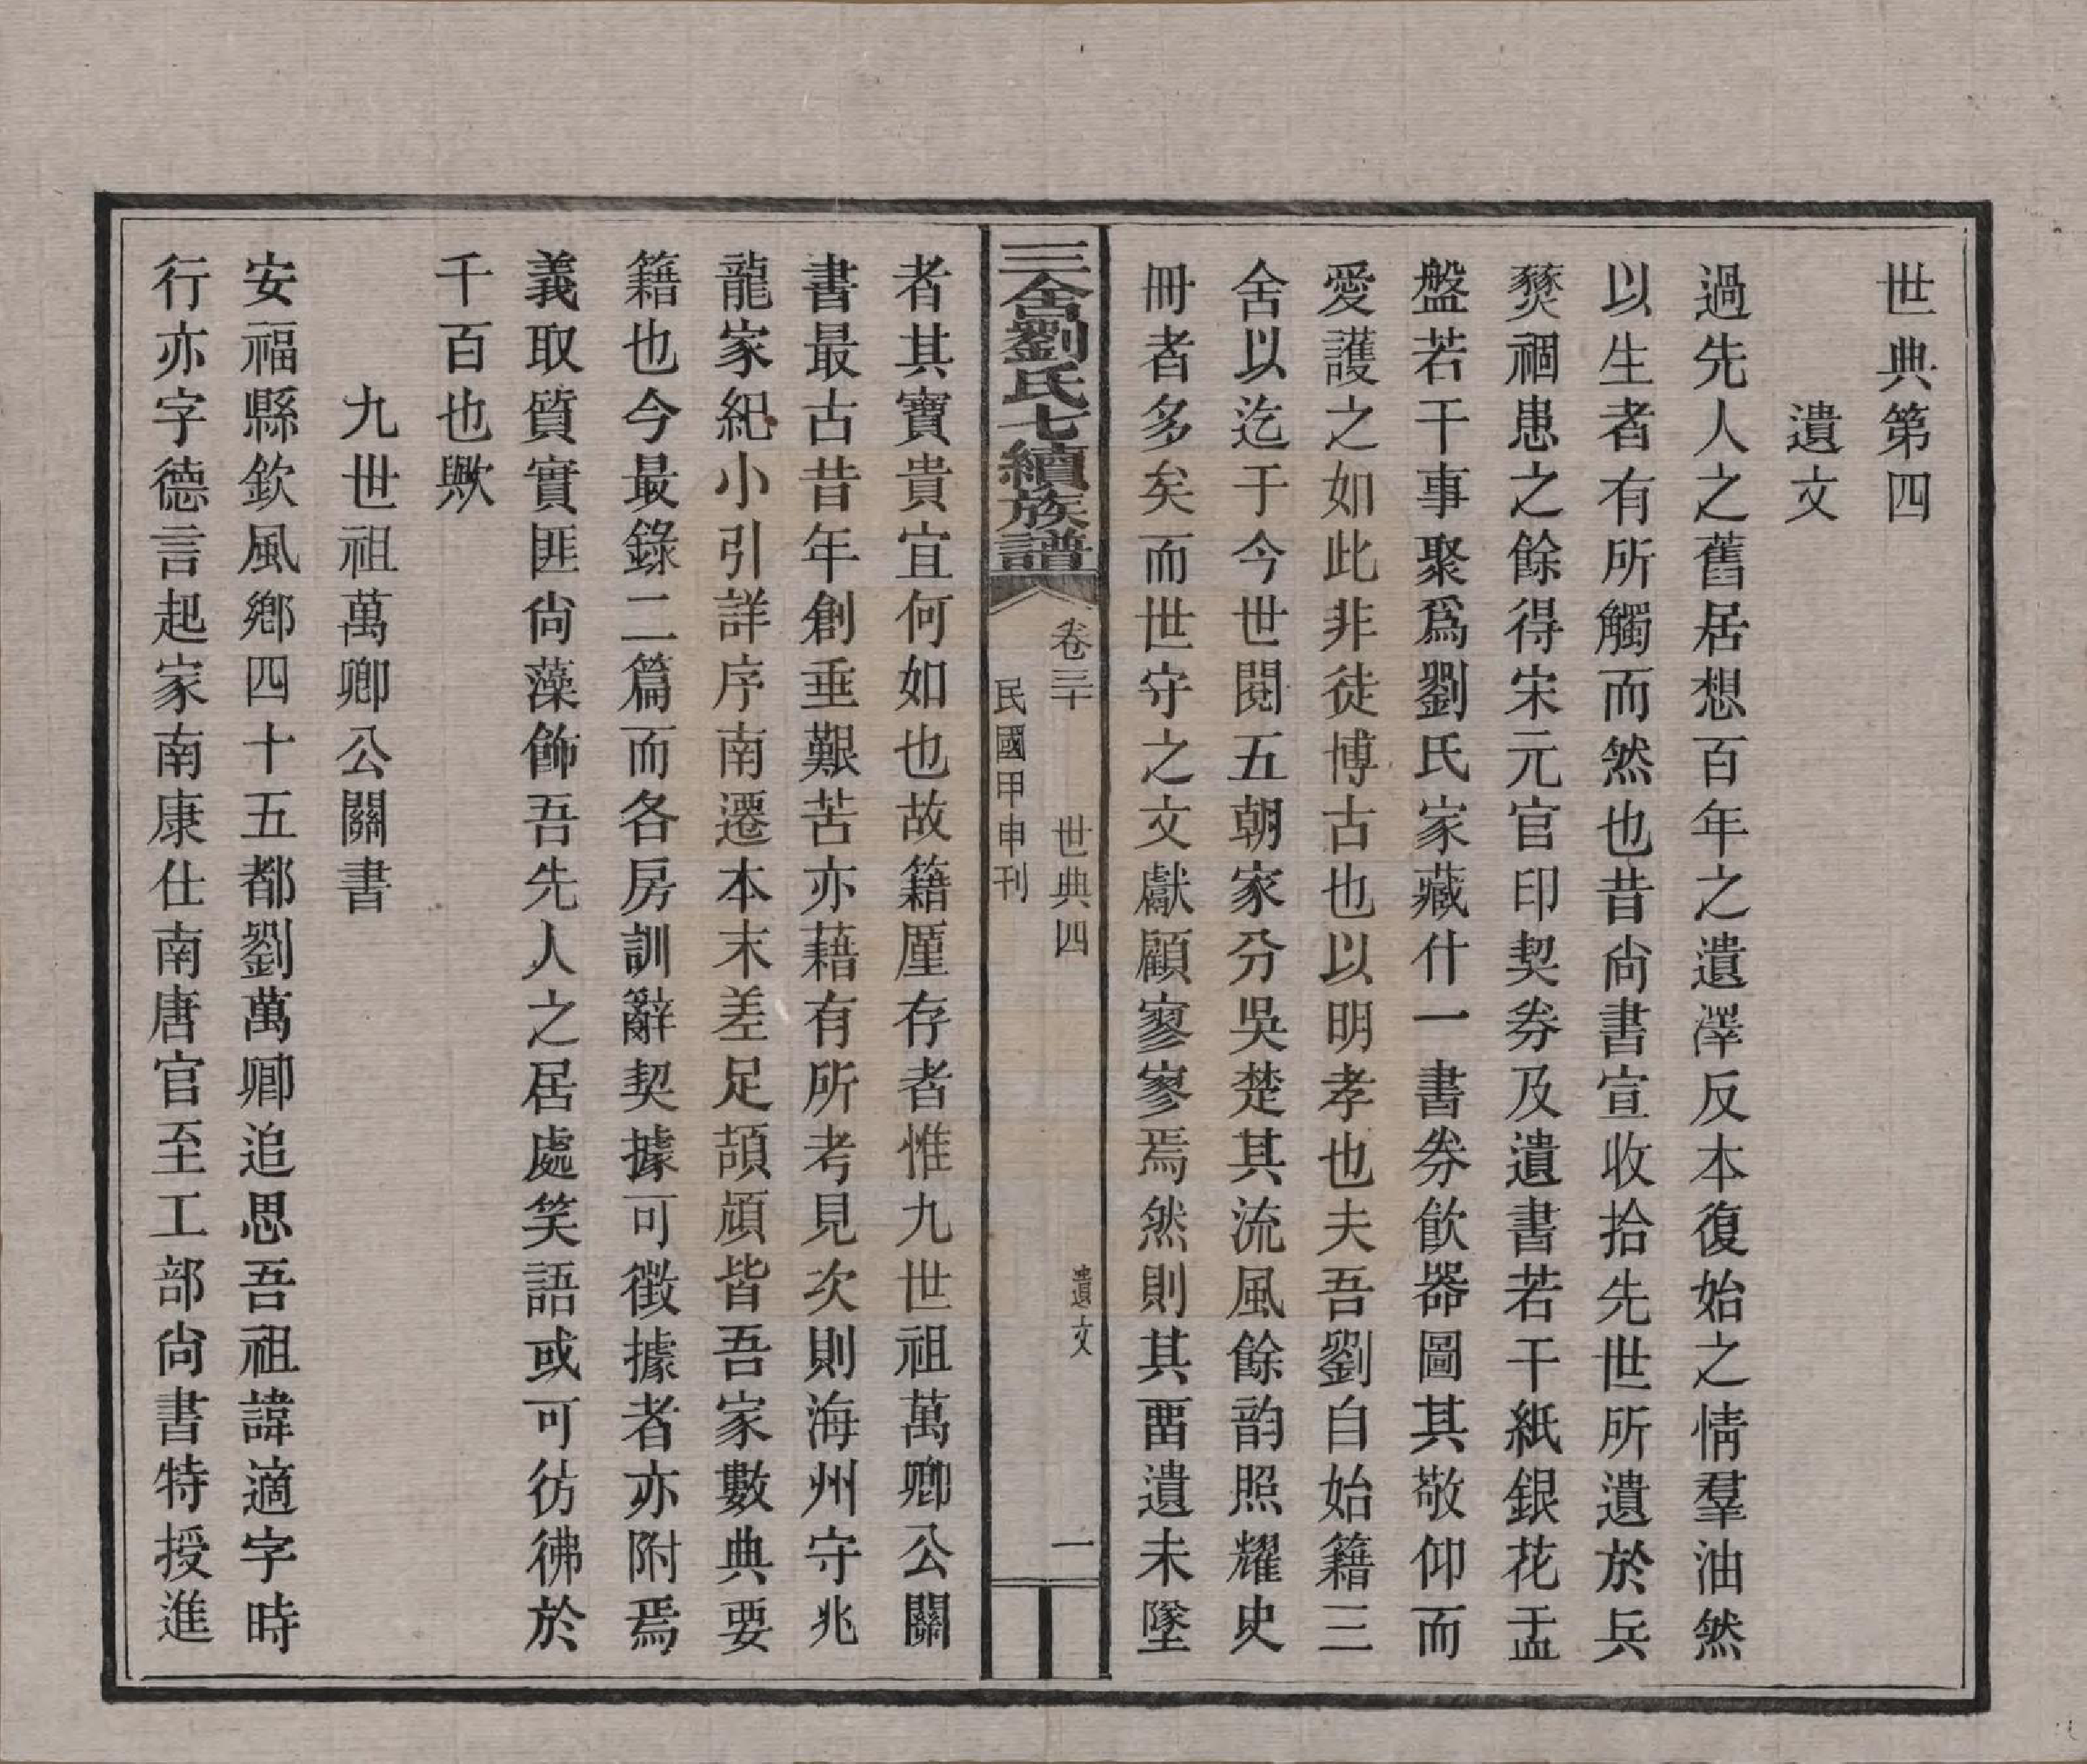 世典第四
遺文
過先人之舊居想百年之遺澤反本復始之情羣油然
以生者有所觸而然也昔尙書宣收拾先世所遺於兵
燹禍患之餘得宋元官印契券及遺書若干紙銀花盂
盤若干事聚爲劉氏家藏什一書券飮器圖其敬仰而
愛護之如此非徒博古也以明孝也夫吾劉自始籍三
舍以迄于今世閱五朝家分吳楚其流風餘韵照耀史
冊者多矣而世守之文獻顧寥寥焉然則其畱遺未墜
三舍劉氏七續族譜
卷三十 世典四 遺文 一
民國甲申刊
者其寶貴宜何如也故籍厪存者惟九世祖萬卿公關
書最古昔年創垂艱苦亦藉有所考見次則海州守兆
龍家紀小引詳序南遷本末差足頡頏皆吾家數典要
籍也今最錄二篇而各房訓辭契據可徵據者亦附焉
義取質實匪尙藻飾吾先人之居處笑語或可彷彿於
千百也歟
九世祖萬卿公關書
安福縣欽風鄕四十五都劉萬卿追思吾祖諱適字時
行亦字德言起家南康仕南唐官至工部尙書特授進